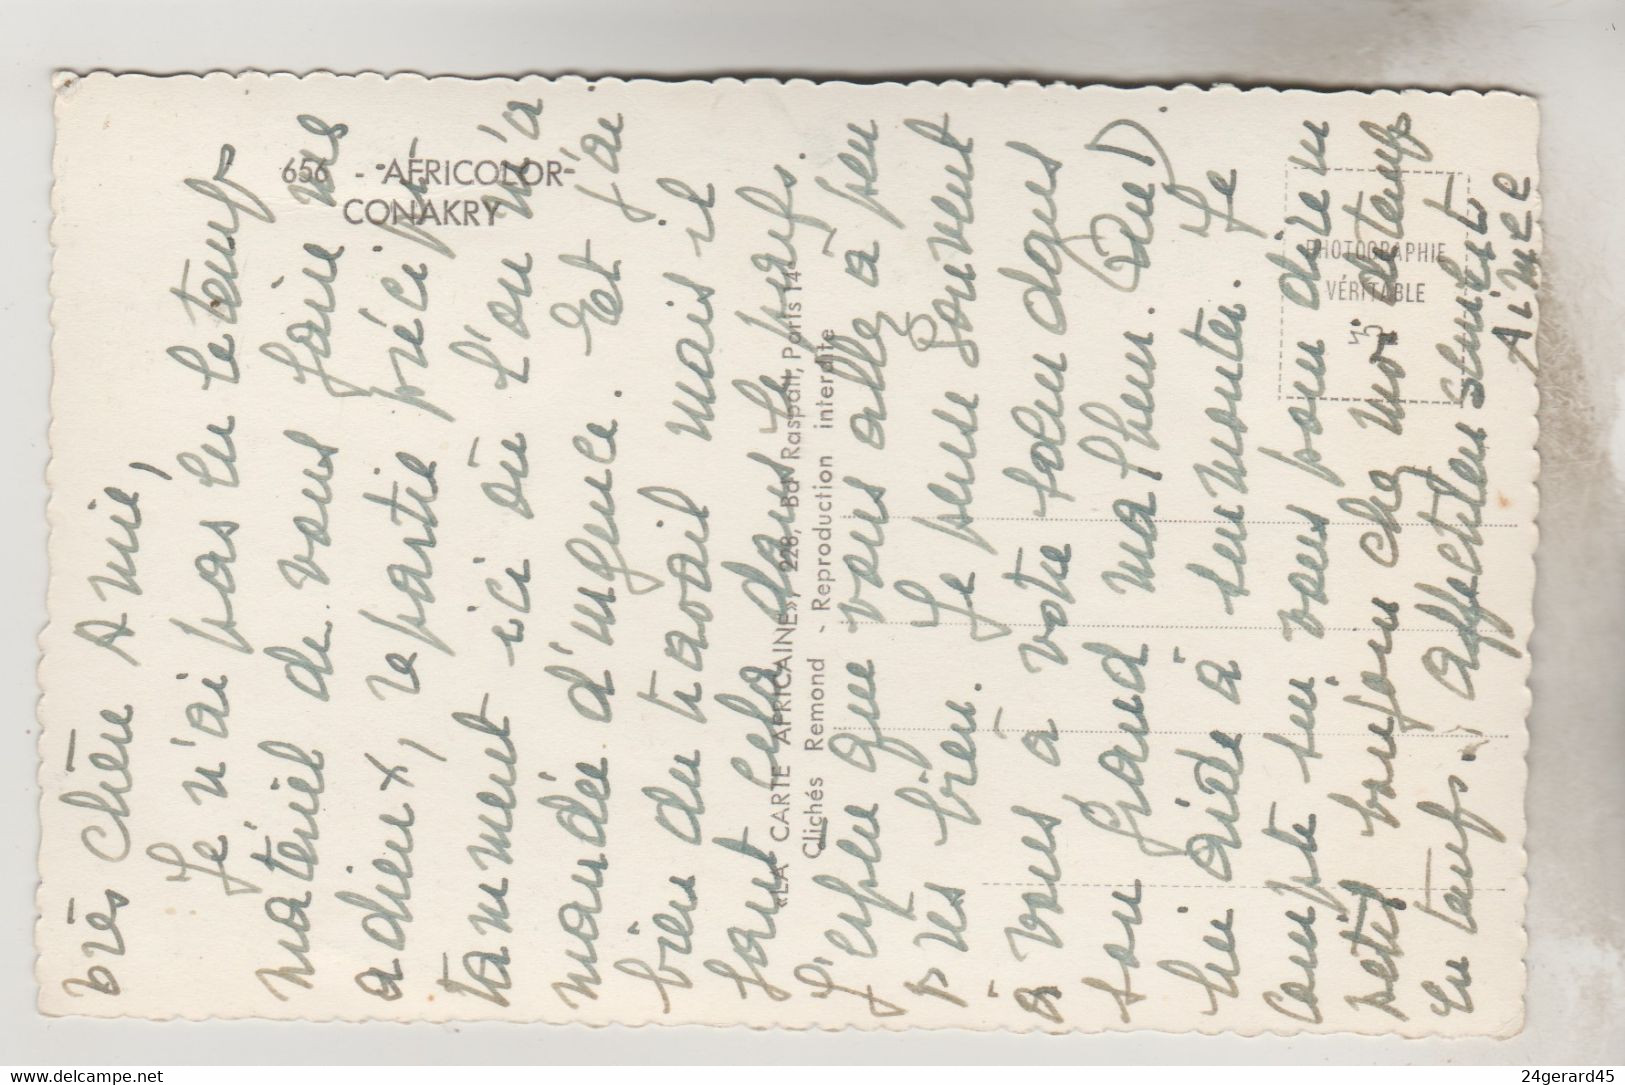 très chère Amie,
Je n'ai pas eu le temps
matériel de vous faire mes
adieux, repartie précipi
tamment ici où l'on m'a
mandée d'urgence. Et j'ai
bien du travail mais il
faut cela dans le pays.
J'espère que vous allez à peu
près bien. Je pense souvent
à vous à votre
son grand malheur. Que D
lui aide à surmonter. Je
compte sur vous pour dire un
petit bonjour chez moi de temps
en temps. Affectueusement
Aimee
656 - "AFRICOLOR"
CONAKRY
«LA CARTE AFRICAINE», 228, Bd Raspail, Paris 14e
Clichés Remond - Reproduction interdite
PHOTOGRAPHIE
VÉRITABLE
www.delcampe.net
24gerard45